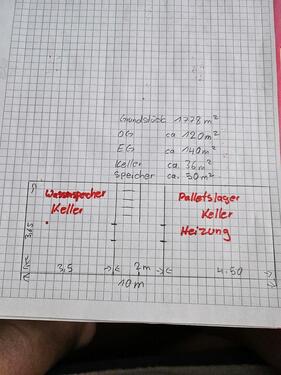 Grundstück 1778 m²
OG ca 120 m²
EG ca 140 m²
Keller ca. 36 m²
Speicher ca. 50 m²
Wasserspeicher
Keller
Palletslager
Keller
Heizung
3,65
3,5
2m
4.50
10m